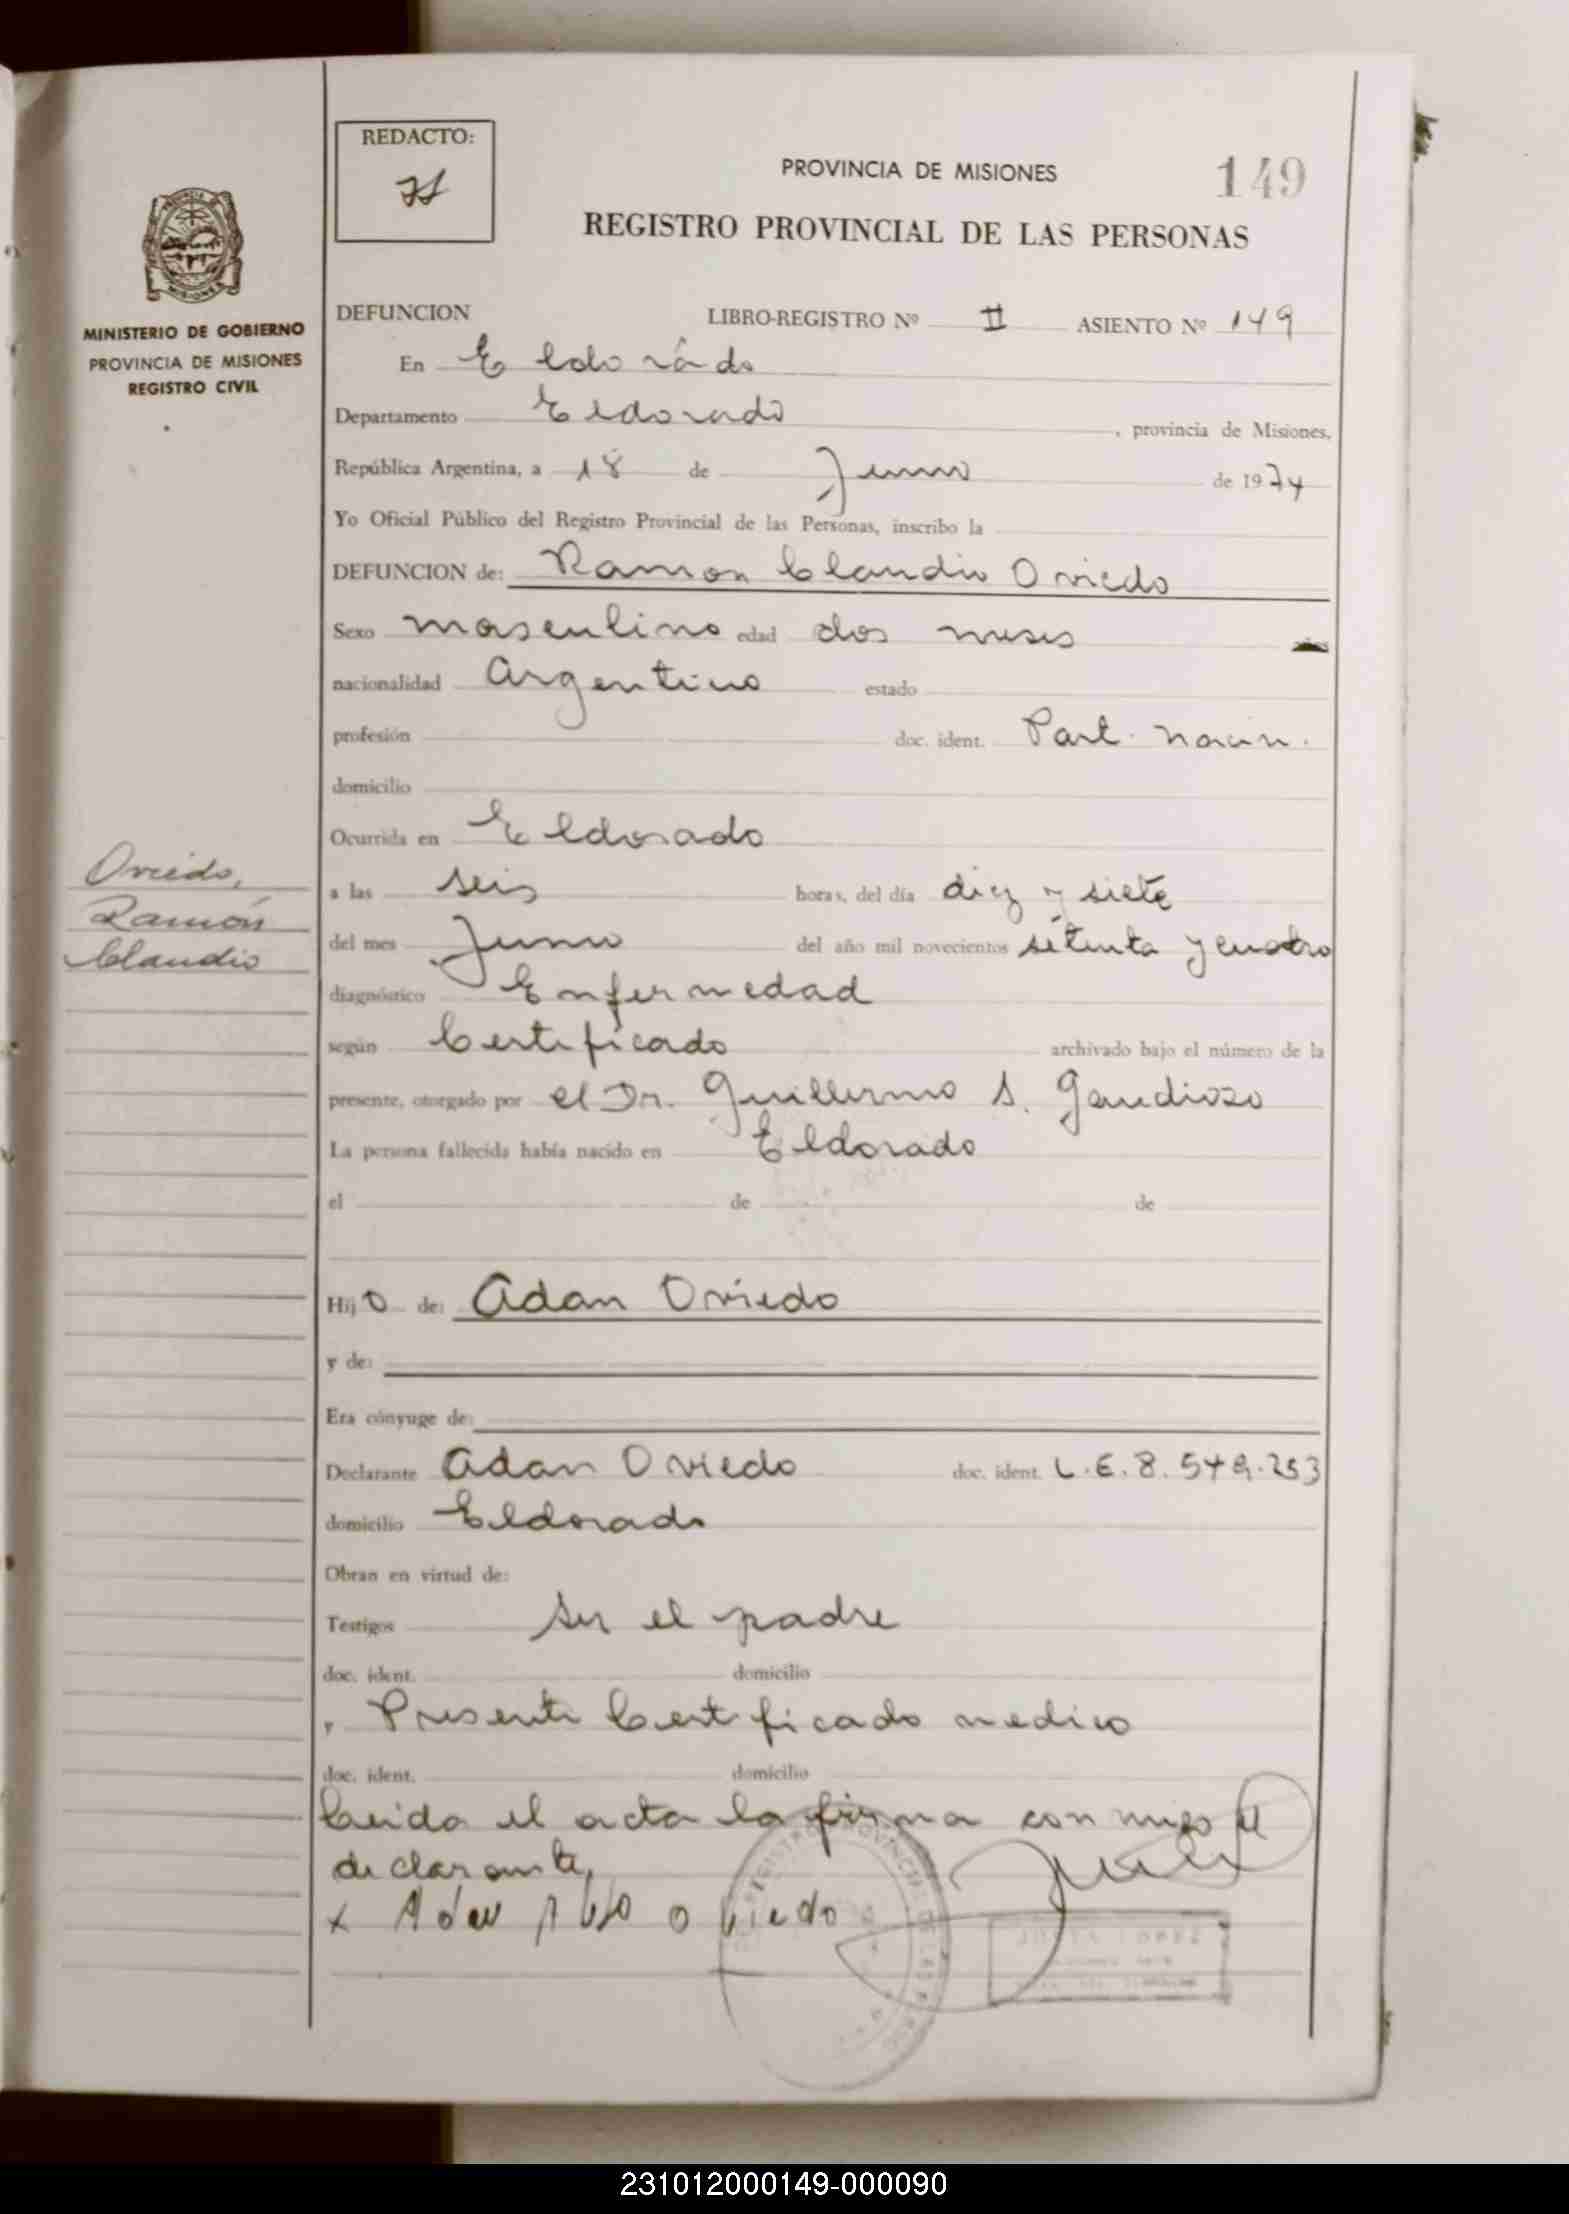 REDACTO:
PROVINCIA DE MISIONES
149
REGISTRO PROVINCIAL DE LAS PERSONAS
MINISTERIO DE GOBIERNO
PROVINCIA DE MISIONES
REGISTRO CIVIL
DEFUNCION LIBRO-REGISTRO Nº II ASIENTO Nº 149
En Eldorado
Departamento Eldorado , provincia de Misiones,
República Argentina, a 18 de Junio de 1974
Yo Oficial Público del Registro Provincial de las Personas, inscribo la
DEFUNCION de: Ramon Claudio Oviedo
Sexo masculino edad dos meses
nacionalidad Argentino estado
profesión doc. ident. Part. nacim.
domicilio
Ocurrida en Eldorado
Oviedo,
Ramón
Claudio
a las seis horas, del día diez y siete
del mes Junio del año mil novecientos setenta y cuatro
diagnóstico Enfermedad
según Certificado archivado bajo el número de la
presente, otorgado por el Dr. Guillermo S. Gaudiozo
La persona fallecida había nacido en Eldorado
el de de
Hijo de: Adan Oviedo
y de:
Era cónyuge de:
Declarante Adan Oviedo doc. ident. L.E. 8.549.253
domicilio Eldorado
Obran en virtud de:
Testigos ser el padre
doc. ident. domicilio
y Presenta Certificado medico
doc. ident. domicilio
Leida el acta la firma con migo el
declarante,
x Adan Oviedo
231012000149-000090